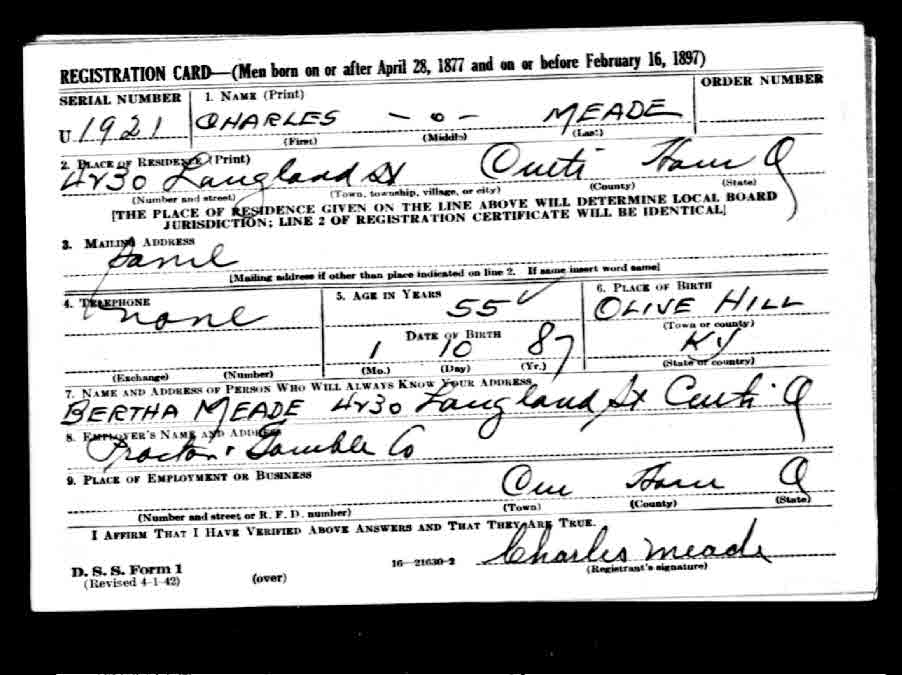 REGISTRATION CARD—(Men born on or after April 28, 1877 and on or before February 16, 1897)
SERIAL NUMBER 1. NAME (Print) ORDER NUMBER
U 1921 CHARLES — o — MEADE
(First) (Middle) (Last)
2. PLACE OF RESIDENCE (Print)
4230 Langland St Cinti Ham O
(Number and street) (Town, township, village, or city) (County) (State)
[THE PLACE OF RESIDENCE GIVEN ON THE LINE ABOVE WILL DETERMINE LOCAL BOARD
JURISDICTION; LINE 2 OF REGISTRATION CERTIFICATE WILL BE IDENTICAL]
3. MAILING ADDRESS
Same
[Mailing address if other than place indicated on line 2. If same insert word same]
4. TELEPHONE 5. AGE IN YEARS 6. PLACE OF BIRTH
none 55 ✓ OLIVE HILL
(Town or county)
DATE OF BIRTH
1 10 87 KY
(Exchange) (Number) (Mo.) (Day) (Yr.) (State or country)
7. NAME AND ADDRESS OF PERSON WHO WILL ALWAYS KNOW YOUR ADDRESS
BERTHA MEADE 4230 Langland St Cinti O
8. EMPLOYER'S NAME AND ADDRESS
Procton & Gamble Co
9. PLACE OF EMPLOYMENT OR BUSINESS
Cin Ham O
(Number and street or R. F. D. number) (Town) (County) (State)
I AFFIRM THAT I HAVE VERIFIED ABOVE ANSWERS AND THAT THEY ARE TRUE.
Charles Meade
D. S. S. Form 1 16—21630-2 (Registrant's signature)
(Revised 4-1-42) (over)